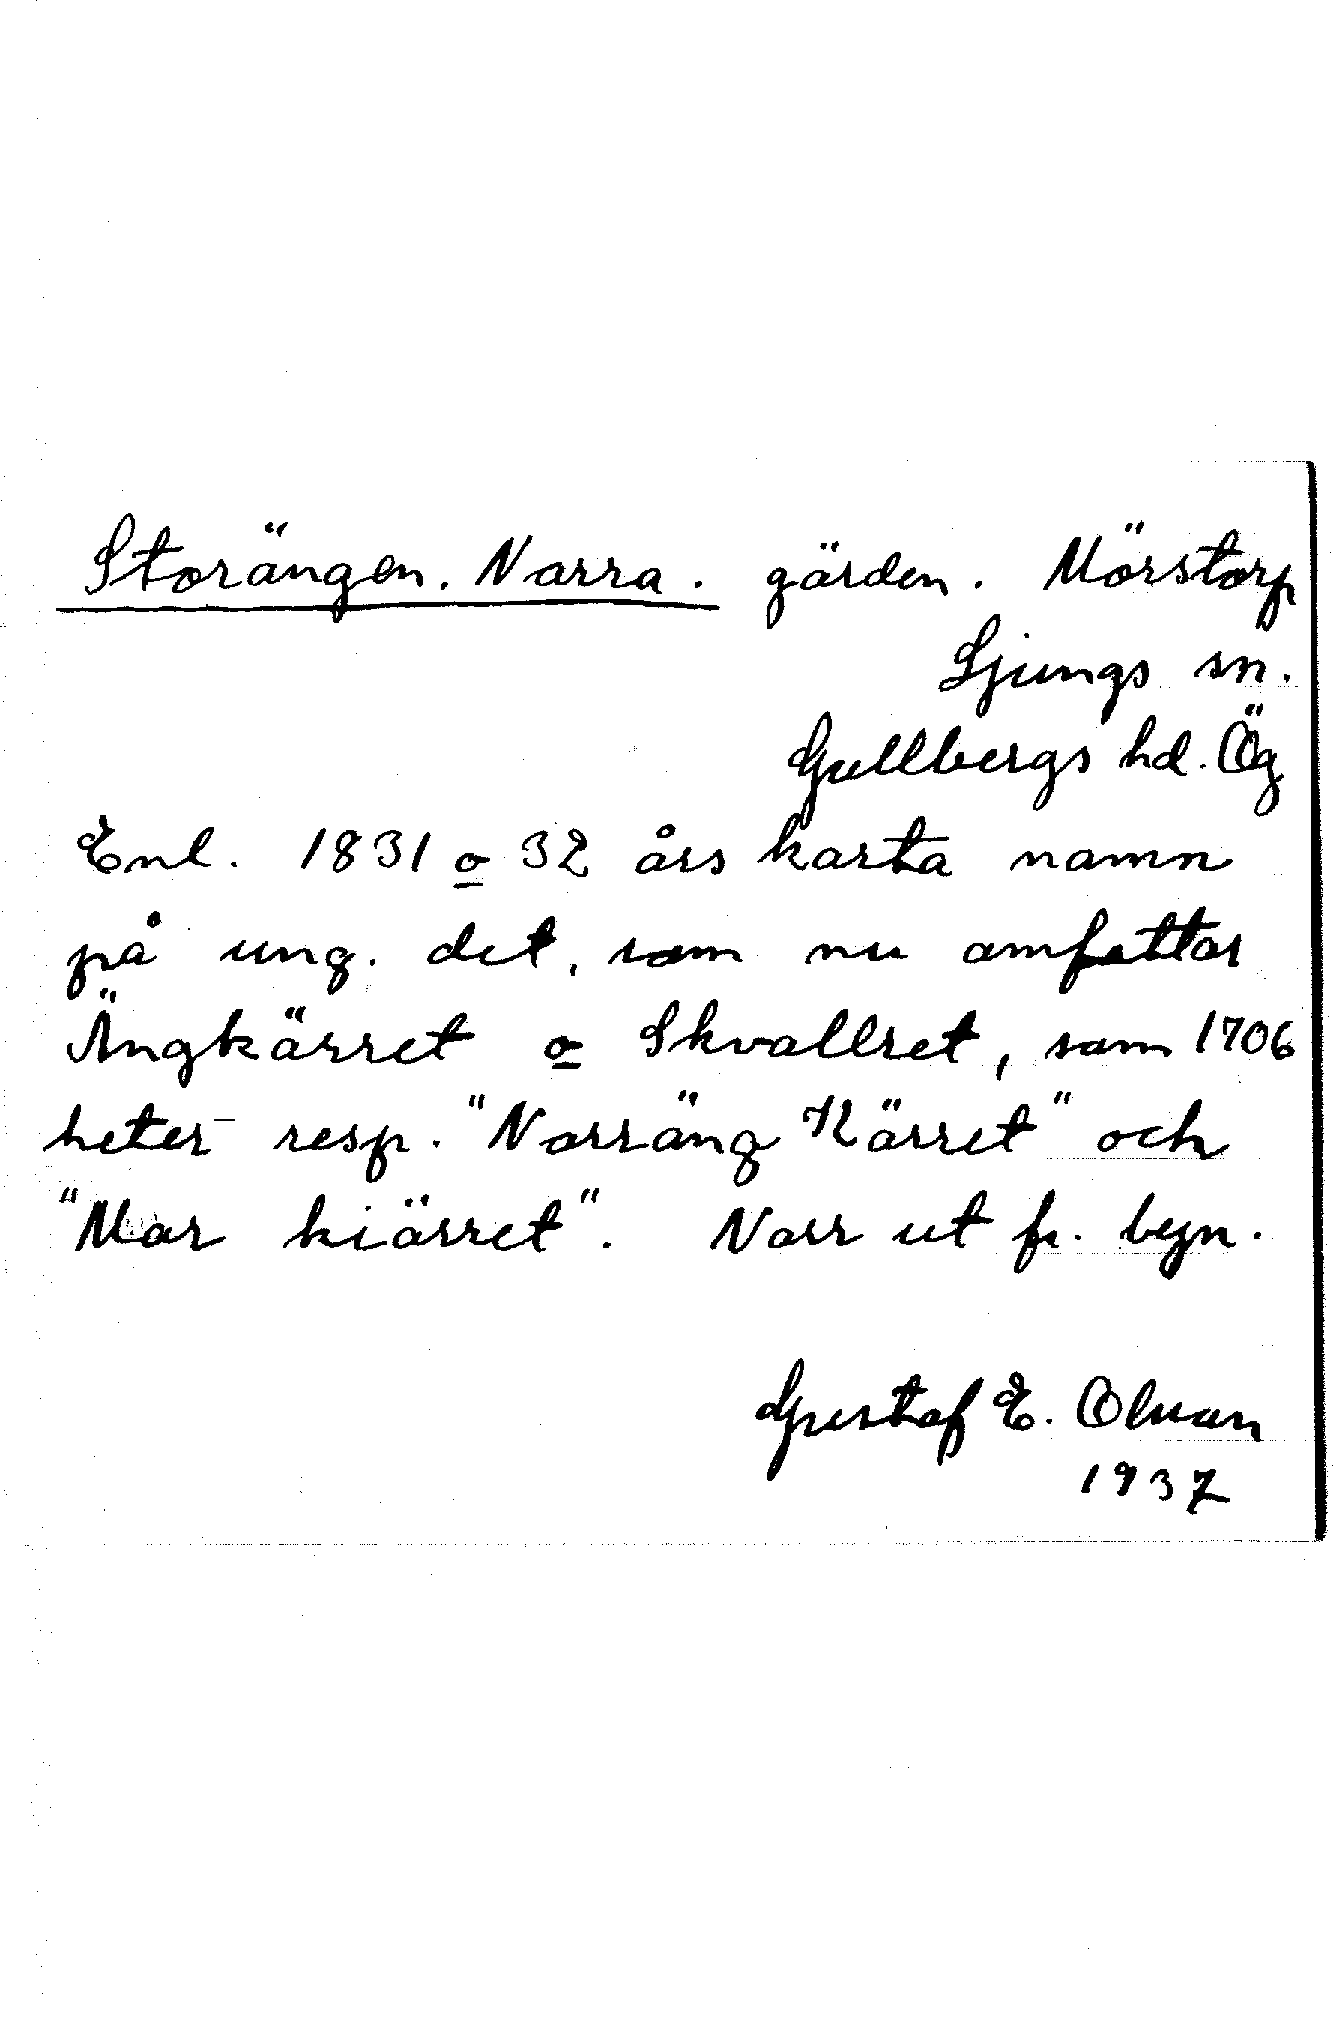 Storängen. Norra. gärden. Mörstorp
Ljungs sn.
Gullbergs hd. Ög
Enl. 1831 o 32 års karta namn
på ung. det, som nu omfattar
Ängkärret o Skvallret, som 1706
heter resp. "Norräng Kärret" och
"Mar kiärret". Norr ut fr. byn.
Gustaf E. Olson
1937